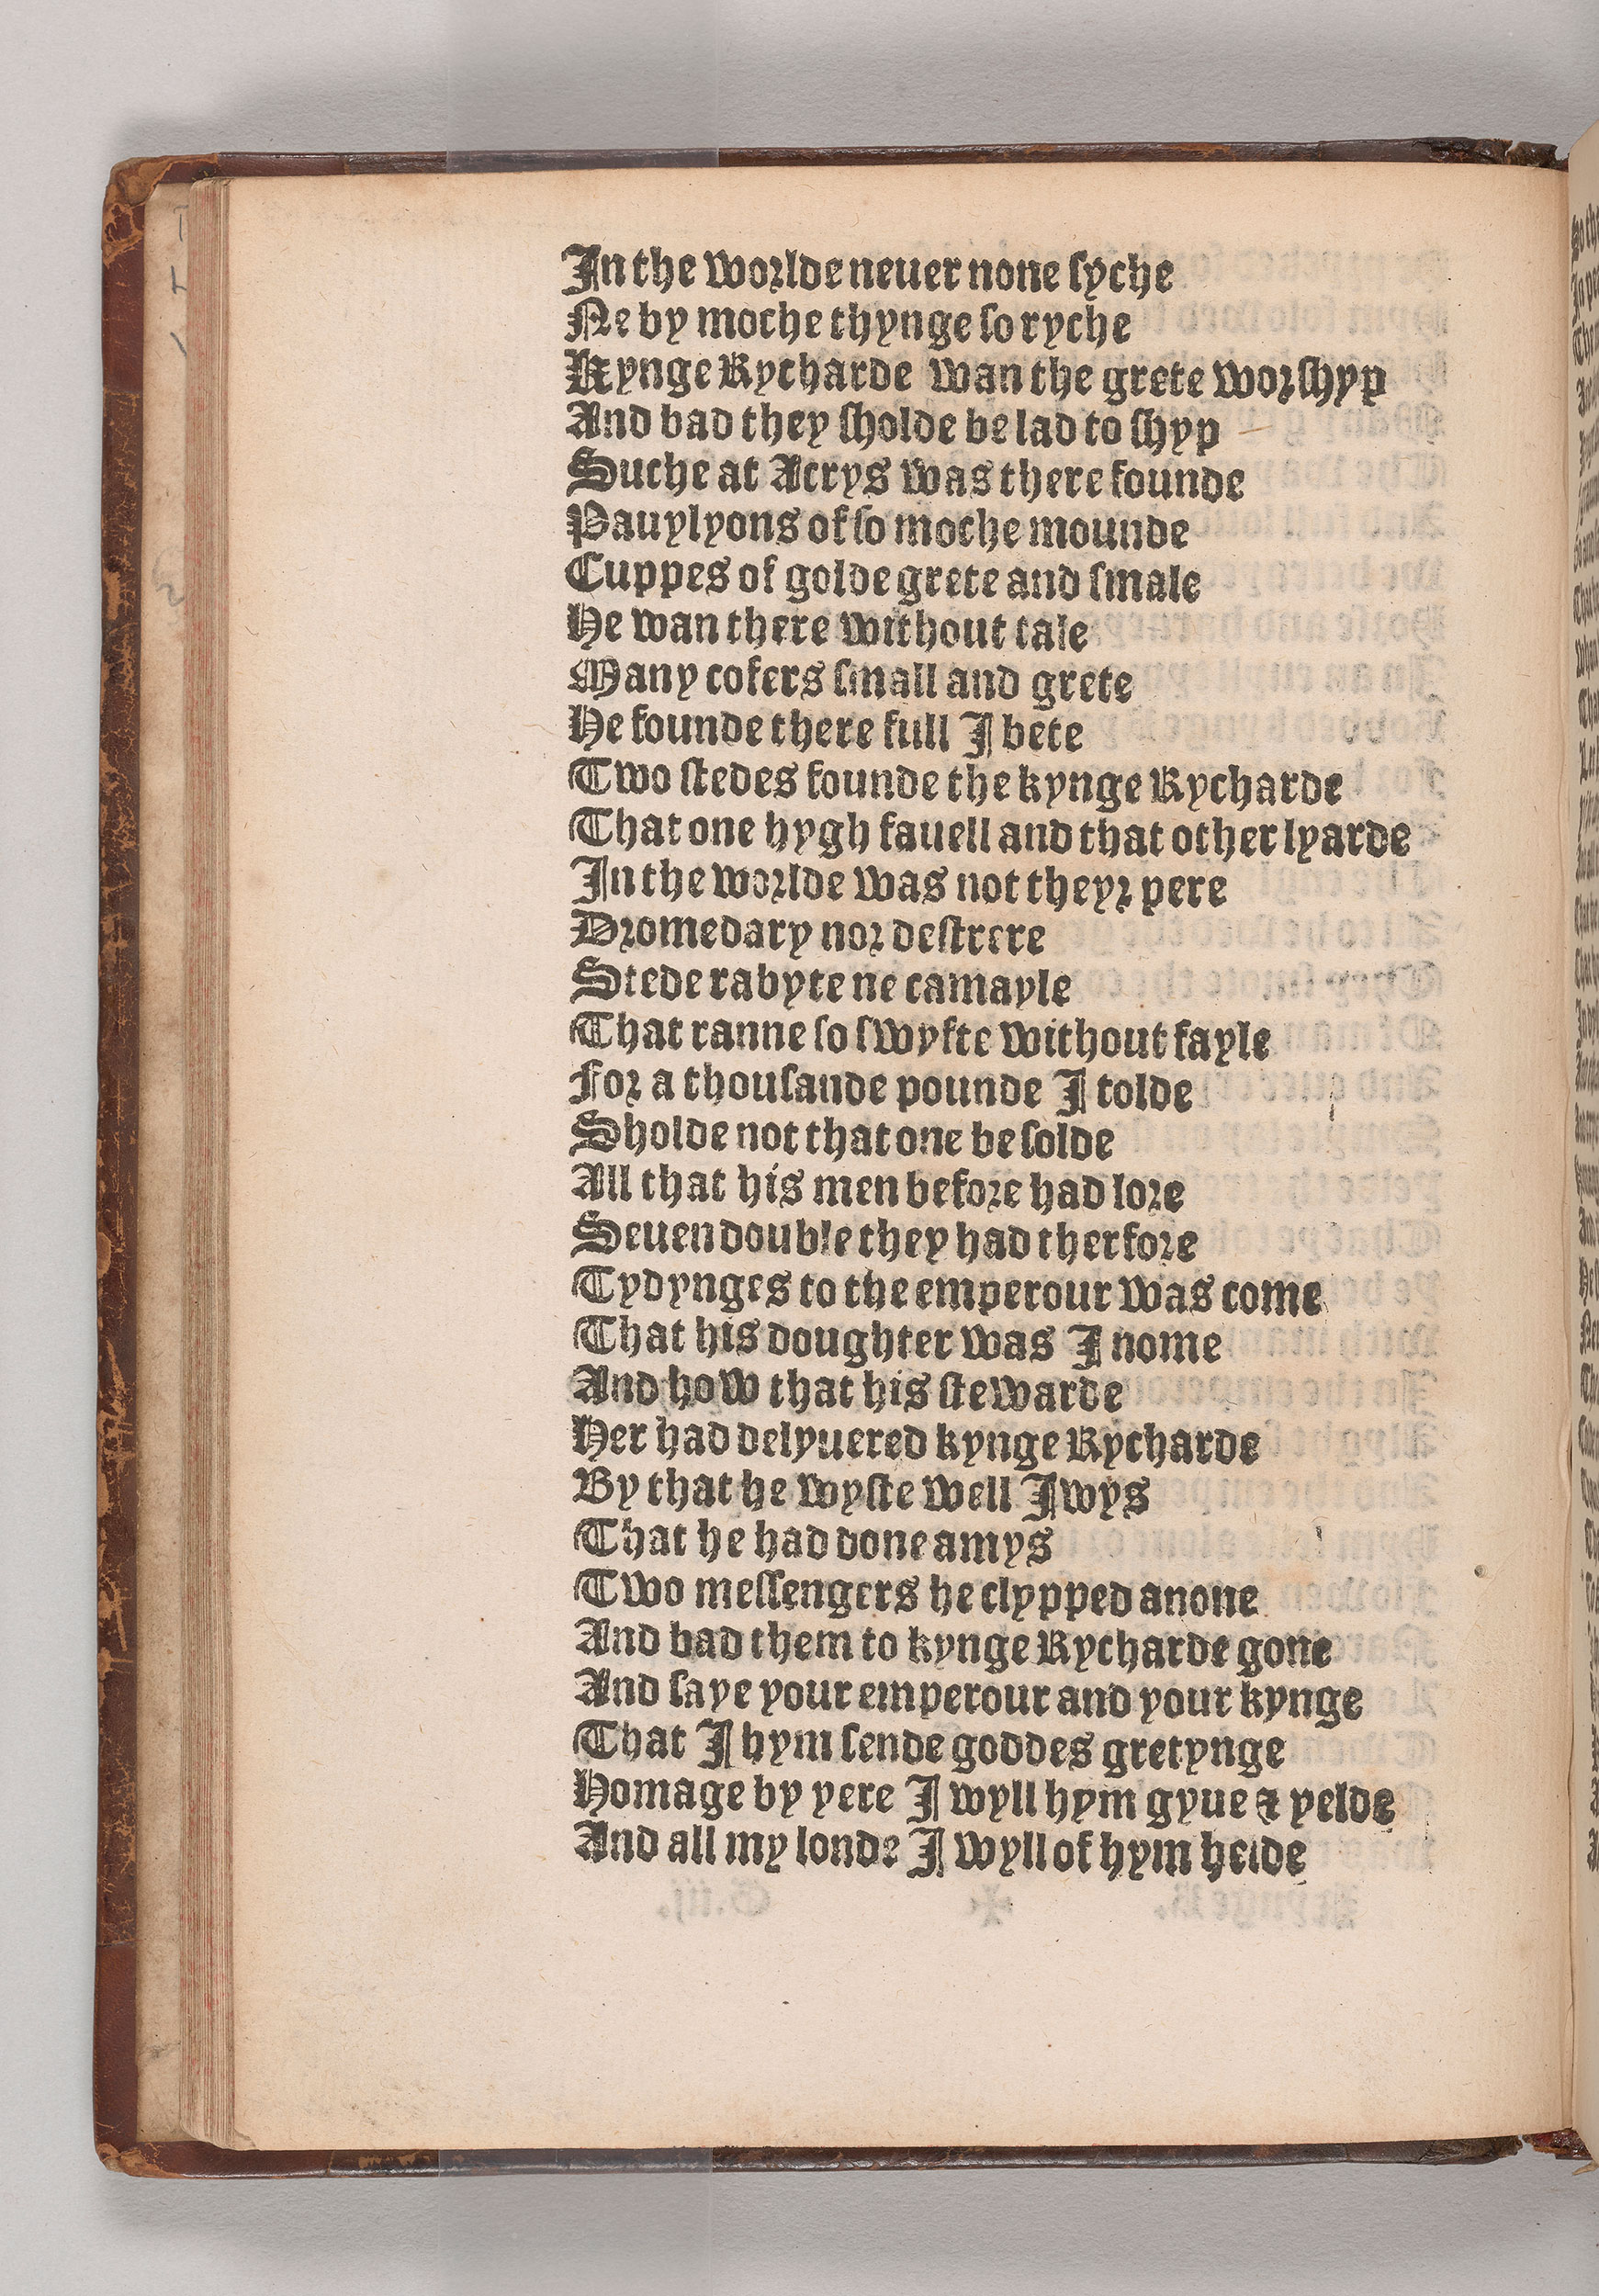 In the worlde neuer none syche
Ne by moche thynge so ryche
Kynge Rycharde wan the grete worshyp
And bad they sholde be lad to shyp
Suche at Acrys was there founde
Pauylyons of so moche mounde
Cuppes of golde grete and smale
He wan there without tale
Many cofers small and grete
He founde there full I bete
Two stedes founde the kynge Rycharde
That one hygh fauell and that other lyarde
In the worlde was not theyr pere
Dromedary nor destrere
Stede rabyte ne camayle
That ranne so swyfte without fayle
For a thousande pounde I tolde
Sholde not that one be solde
All that his men before had lore
Seuen double they had therfore
Tydynges to the emperour was come
That his doughter was I nome
And how that his stewarde
Her had delyuered kynge Rycharde
By that he wyste well Iwys
That he had done amys
Two messengers he clypped anone
And bad them to kynge Rycharde gone
And saye your emperour and your kynge
That I hym sende goddes gretynge
Homage by yere I wyll hym gyue & yelde
And all my londe I wyll of hym helde